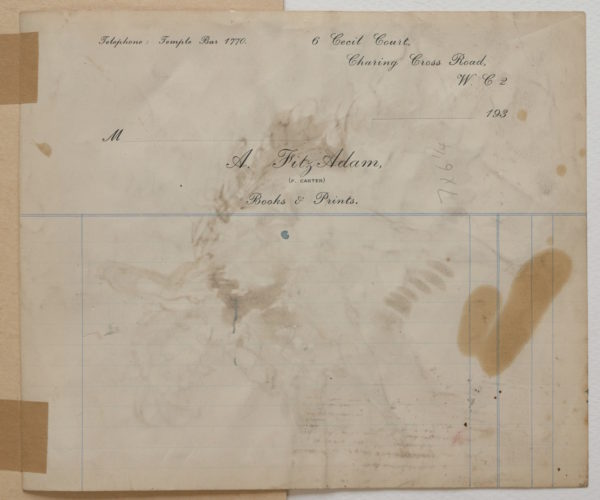 Telephone: Temple Bar 1770.
6 Cecil Court,
Charing Cross Road,
W. C 2
193
M
A. Fitz Adam,
(F. CARTER)
Books & Prints.
7 x 6 1/4